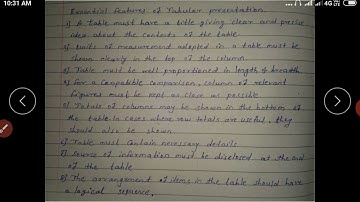 10:31 AM
4G
Essential features of Tabular presentation
1) A table must have a title giving clear and precise
idea about the contents of the table
2) Units of measurement adopted in a table must be
shown clearly in the top of the column
3) Table must be well proportioned in length & breadth.
4) For a Compatible comparison, column of relevant
figures must be kept as close as possible
5) Totals of columns may be shown in the bottom of
the table in cases where row totals are useful, they
should also be shown
6) Table must contain necessary details
7) Source of information must be disclosed at the end
of the table
8) The arrangement of items in the table should have
a logical sequence.